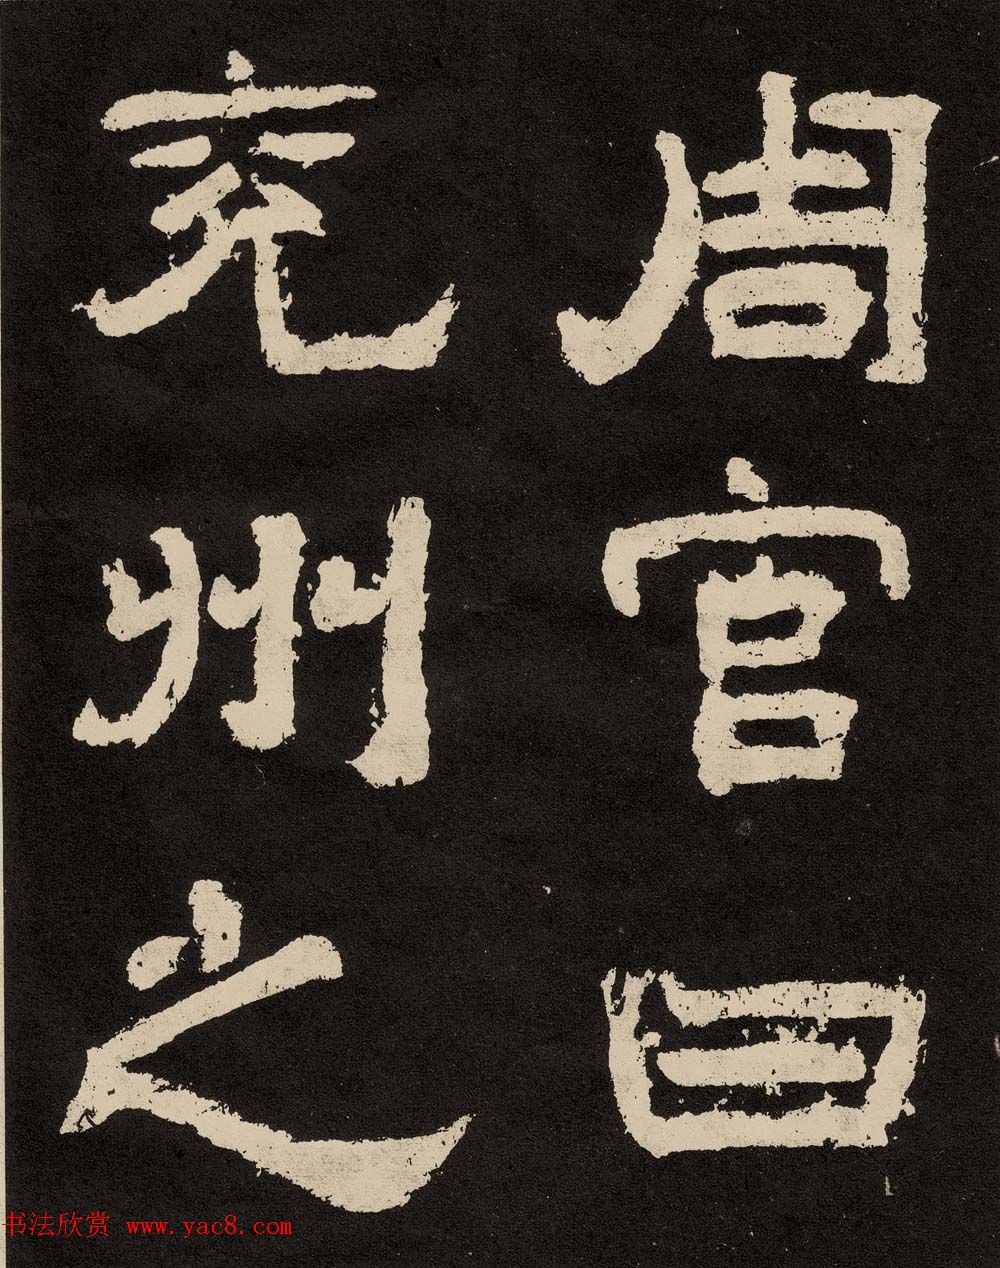 周官曰
兖州之
书法欣赏 www.yac8.com